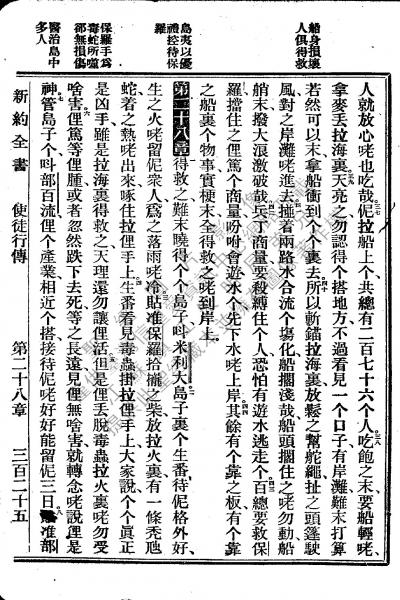 船身損壞
人俱得救
島夷以優
禮接待保
羅
保羅手爲
毒蛇所噬
郤無損傷
醫治島中
多人
人就放心咾也吃哉伲拉船上个共總有二百七十六个人吃飽之末要船輕咾
拿麥丟拉海裏天亮之勿認得个搭地方不過看見一个口子有岸灘難末打算
若然可以末拿船衝到个个裏去所以斬錨拉海裏放鬆之幫舵繩扯之頭篷駛
風對之岸灘咾進去撞着兩路水合流个塲化船擱淺哉船頭擱住之咾勿動船
艄末撥大浪激破哉兵丁商量要殺縛住个人恐怕有遊水逃走个百總要救保
羅擋住之俚篤个商量吩咐會遊水个先下水咾上岸其餘有个靠之板有个靠
之船裏个物事實梗末全得救之咾到岸上
第二十八章 得救之難末曉得个个島子呌米利大島子裏个生番待伲格外好
生之火咾留伲衆人爲之落雨咾冷貼准保羅拾攏之柴放拉火裏有一條禿虺
蛇着之熱咾出來啄住拉俚手上生番看見毒蟲掛拉俚手上大家說个个眞正
是凶手雖是拉海裏得救之天理還勿讓俚活但是俚丟脫毒蟲拉火裏咾勿受
啥害俚篤等俚腫或者忽然跌下去死等之長遠見俚無啥害就轉念咾說俚是
神管島子个呌部百流俚个產業相近个搭接待伲咾好好能留伲三日准部
新約全書 使徒行傳 第二十八章 三百二十五